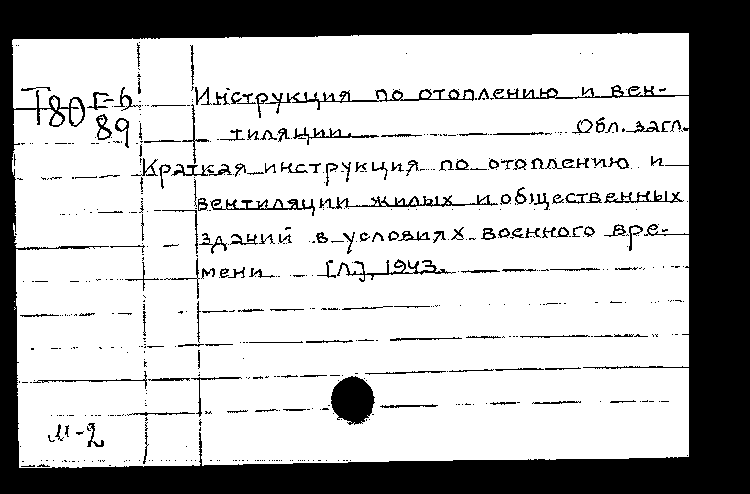 Т80 Г-6
89
Инструкция по отоплению и вен-
тиляции. Обл. загл.
Краткая инструкция по отоплению и
вентиляции жилых и общественных
зданий в условиях военного вре-
мени [Л.], 1943.
М-2